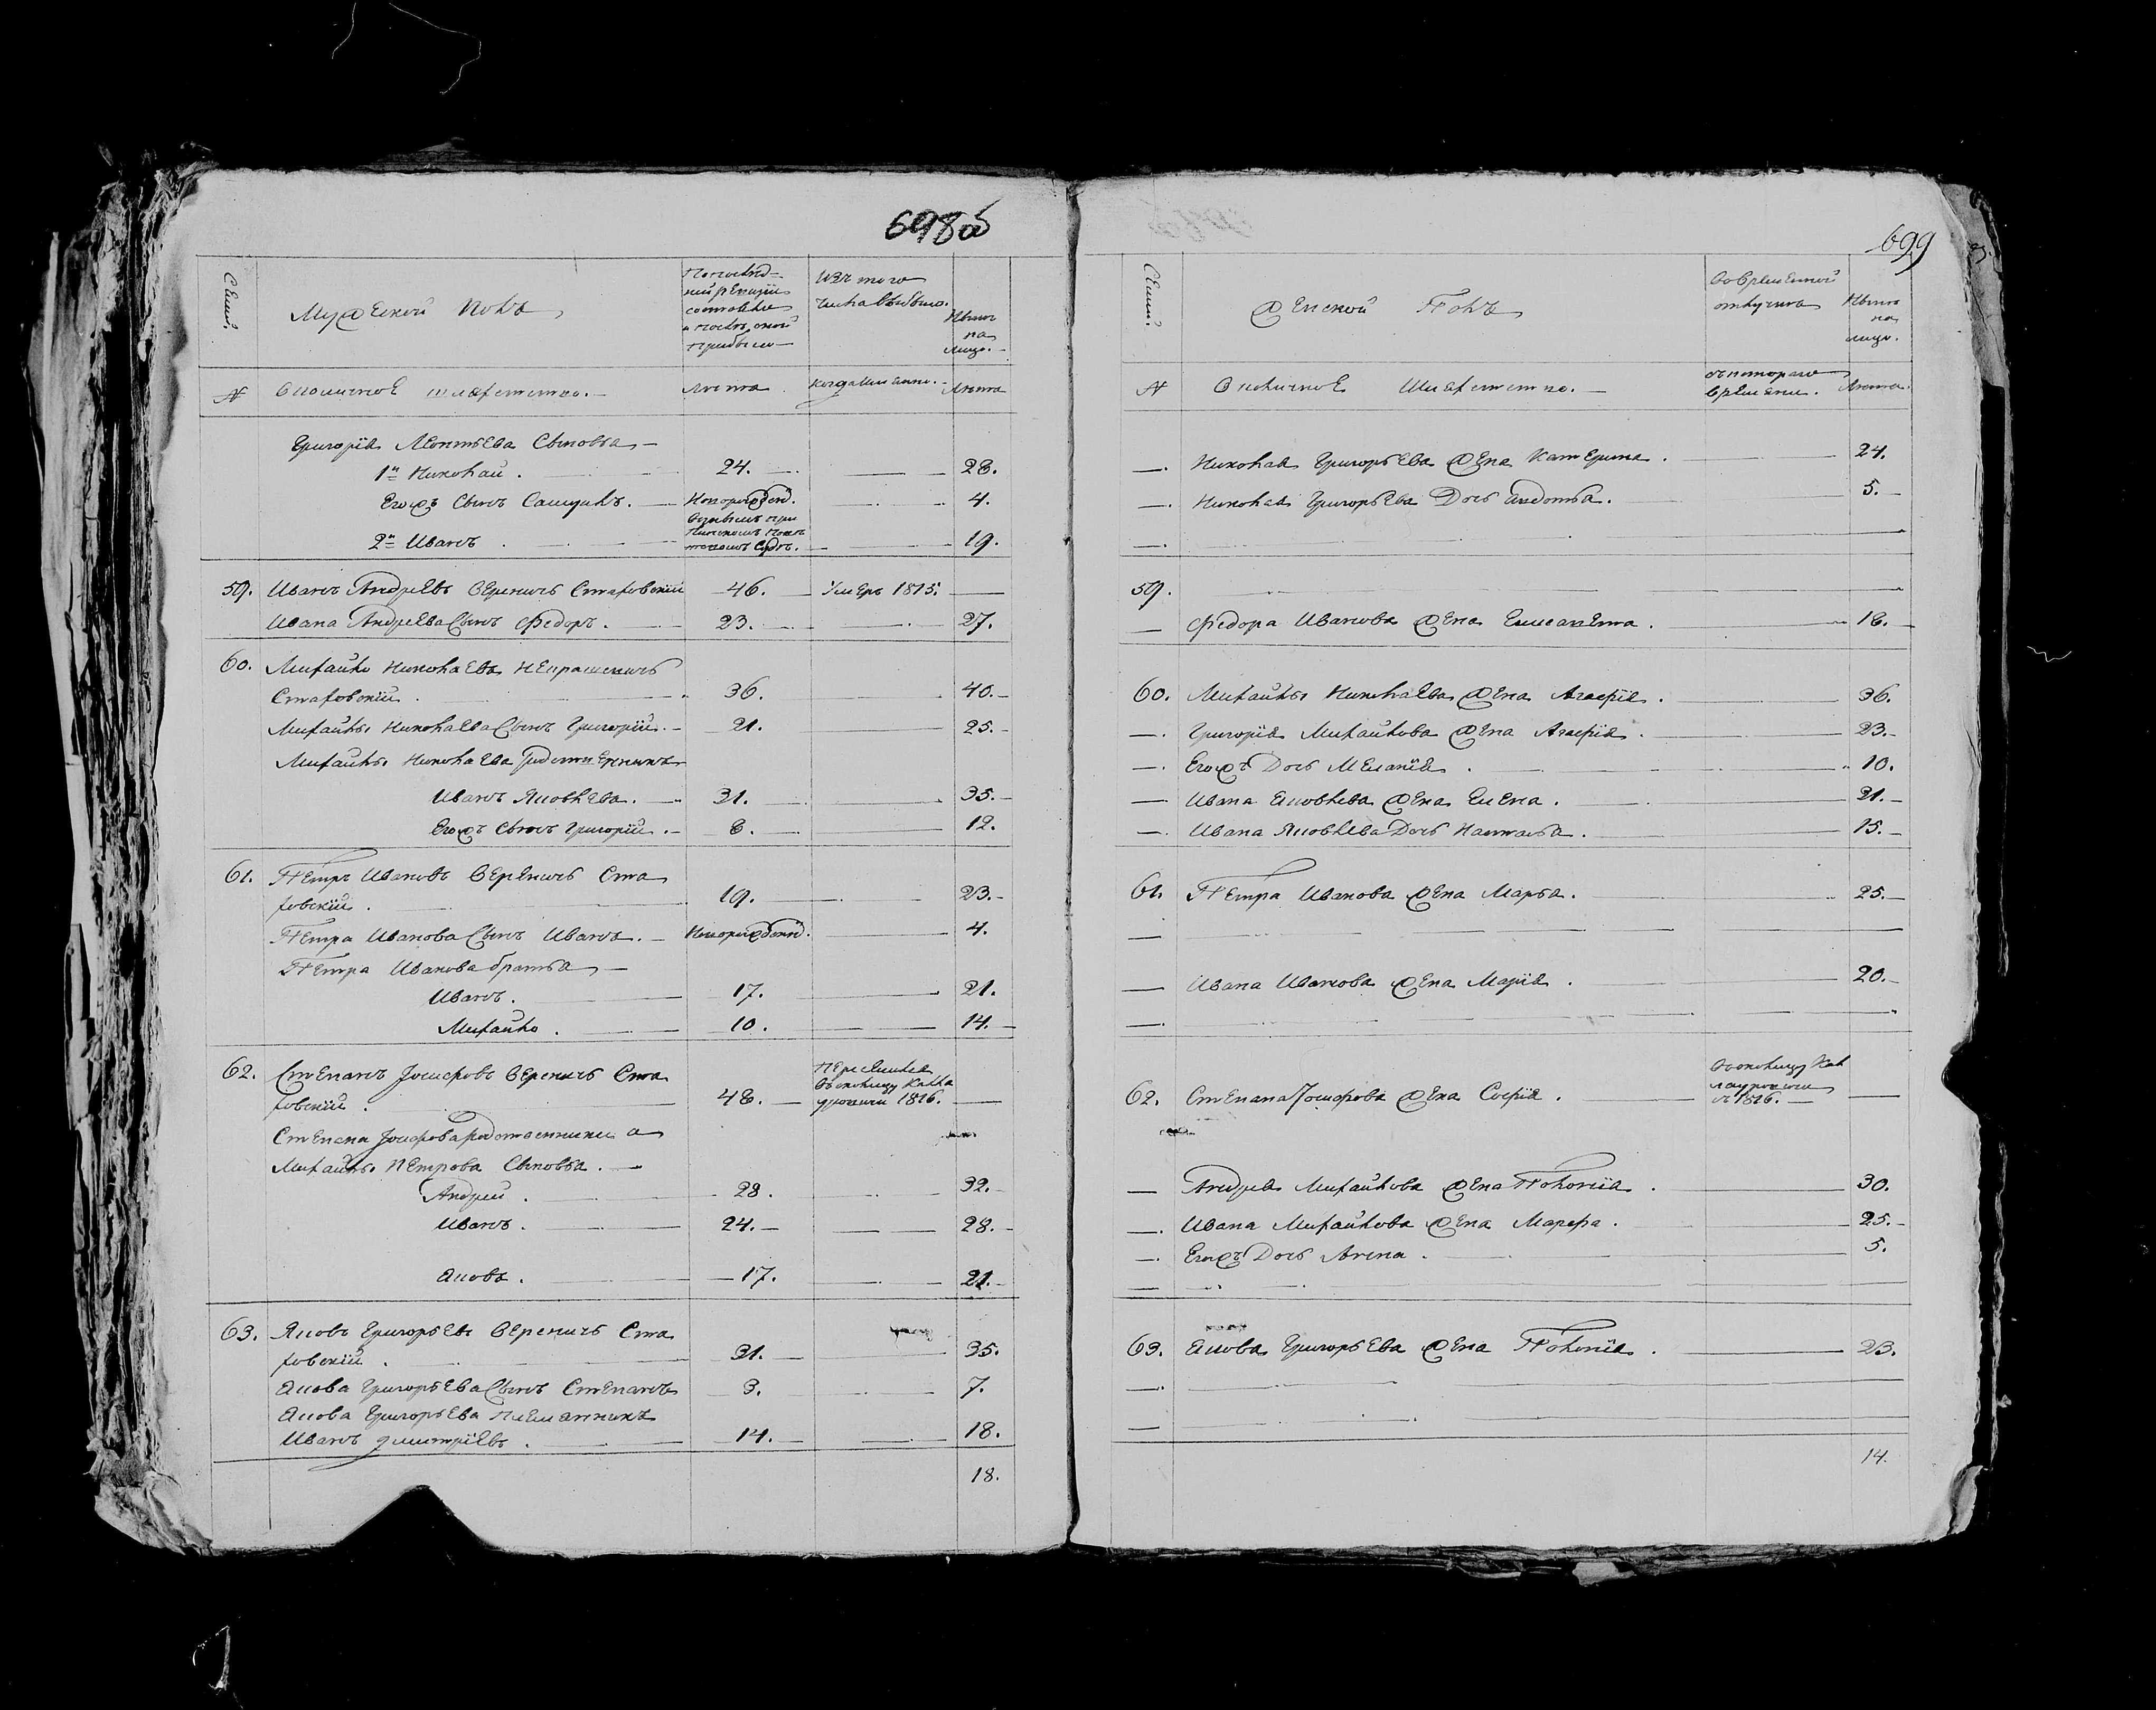 698об
Семьи.
Мужеской Полъ,
По послѣд-
ней ревизіи
состояло
и послѣ оной
прибыло
Изъ того
числа выбыло.
Нынѣ
на
лицо.
№
Околичное шляхетство.
Лѣта
когда имянно.
Лѣта
Григорія Леонтьева Сыновья
1й Николай . 24. 28.
Егожъ Сынъ Самуилъ. Новорожден. 4.
2й Иванъ . 19.
59. Иванъ Андреевъ Вереничъ Стаховскій 46. Умеръ 1813.
Ивана Андреева Сынъ Федоръ. 23. 27.
60. Михайло Николаевъ Непрашеничъ
Стаховскій . 36. 40.
Михайлы Николаева Сынъ Григорій. 21. 25.
Михайлы Николаева Родственникъ
Иванъ Яковлева. 31. 35.
Егожъ Сынъ Григорій. 8. 12.
61. Петръ Ивановъ Вереничъ Ста
ховскій . 19. 23.
Петра Иванова Сынъ Иванъ. Новорожденн. 4.
Петра Иванова братья
Иванъ. 17. 21.
Михайло . 10. 14.
62. Степанъ Іосифовъ Вереничъ Ста
ховскій . 48. 1816.
Степана Іосифова родственники а
Михайлы Петрова Сыновья .
Андрей . 28. 32.
Иванъ . 24. 28.
Яковъ . 17. 21.
63. Яковъ Григорьевъ Вереничъ Ста
ховскій . 31. 35.
Якова Григорьева Сынъ Степанъ 3. 7.
Якова Григорьева племянникъ
Иванъ Дмитріевъ . 14. 18.
18.
699
Семьи.
Женской Полъ
Во временной
отлучкѣ
Нынѣ
на
лицо.
№
Околичное Шляхетство.
съ котораго
времени.
Лѣта.
Николая Григорьева Жена Катерина . 24.
Николая Григорьева Дочь Авдотья. 5.
59.
Федора Иванова Жена Елисавета . 18.
60. Михайлы Николаева Жена Агафія . 36.
Григорія Михайлова Жена Агафія . 23.
Егожъ Дочь Меланія . 10.
Ивана Яковлева Жена Елена . 21.
Ивана Яковлева Дочь Настасья . 15.
61. Петра Иванова Жена Марья . 25.
Ивана Иванова Жена Марія . 20.
62. Степана Іосифова Жена Софія . 1816.
Андрея Михайлова Жена Полонія . 30.
Ивана Михайлова Жена Марфа . 25.
Егожъ Дочь Анна . 5.
63. Якова Григорьева Жена Полонія . 23.
14.